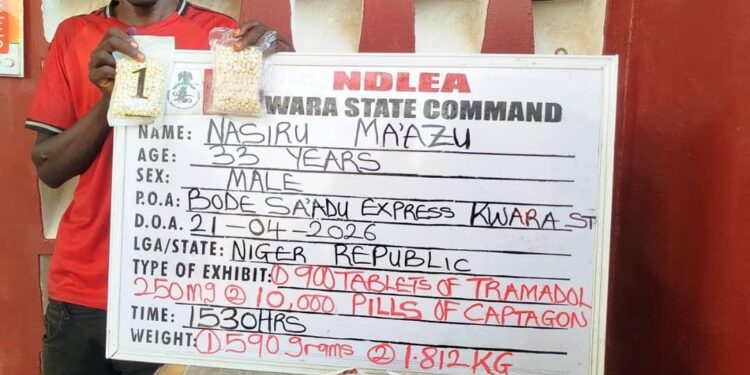 1
NDLEA
WARA STATE COMMAND
NAME: NASIRU MA'AZU
AGE: 33 YEARS
SEX: MALE
P.O.A: BODE SA'ADU EXPRESS KWARA ST
D.O.A. 21-04-2026
LGA/STATE: NIGER REPUBLIC
TYPE OF EXHIBIT: ① 900 TABLETS OF TRAMADOL
250mg ② 10,000 PILLS OF CAPTAGON
TIME: 1530HRS
WEIGHT: ① 590grams ② 1.812KG